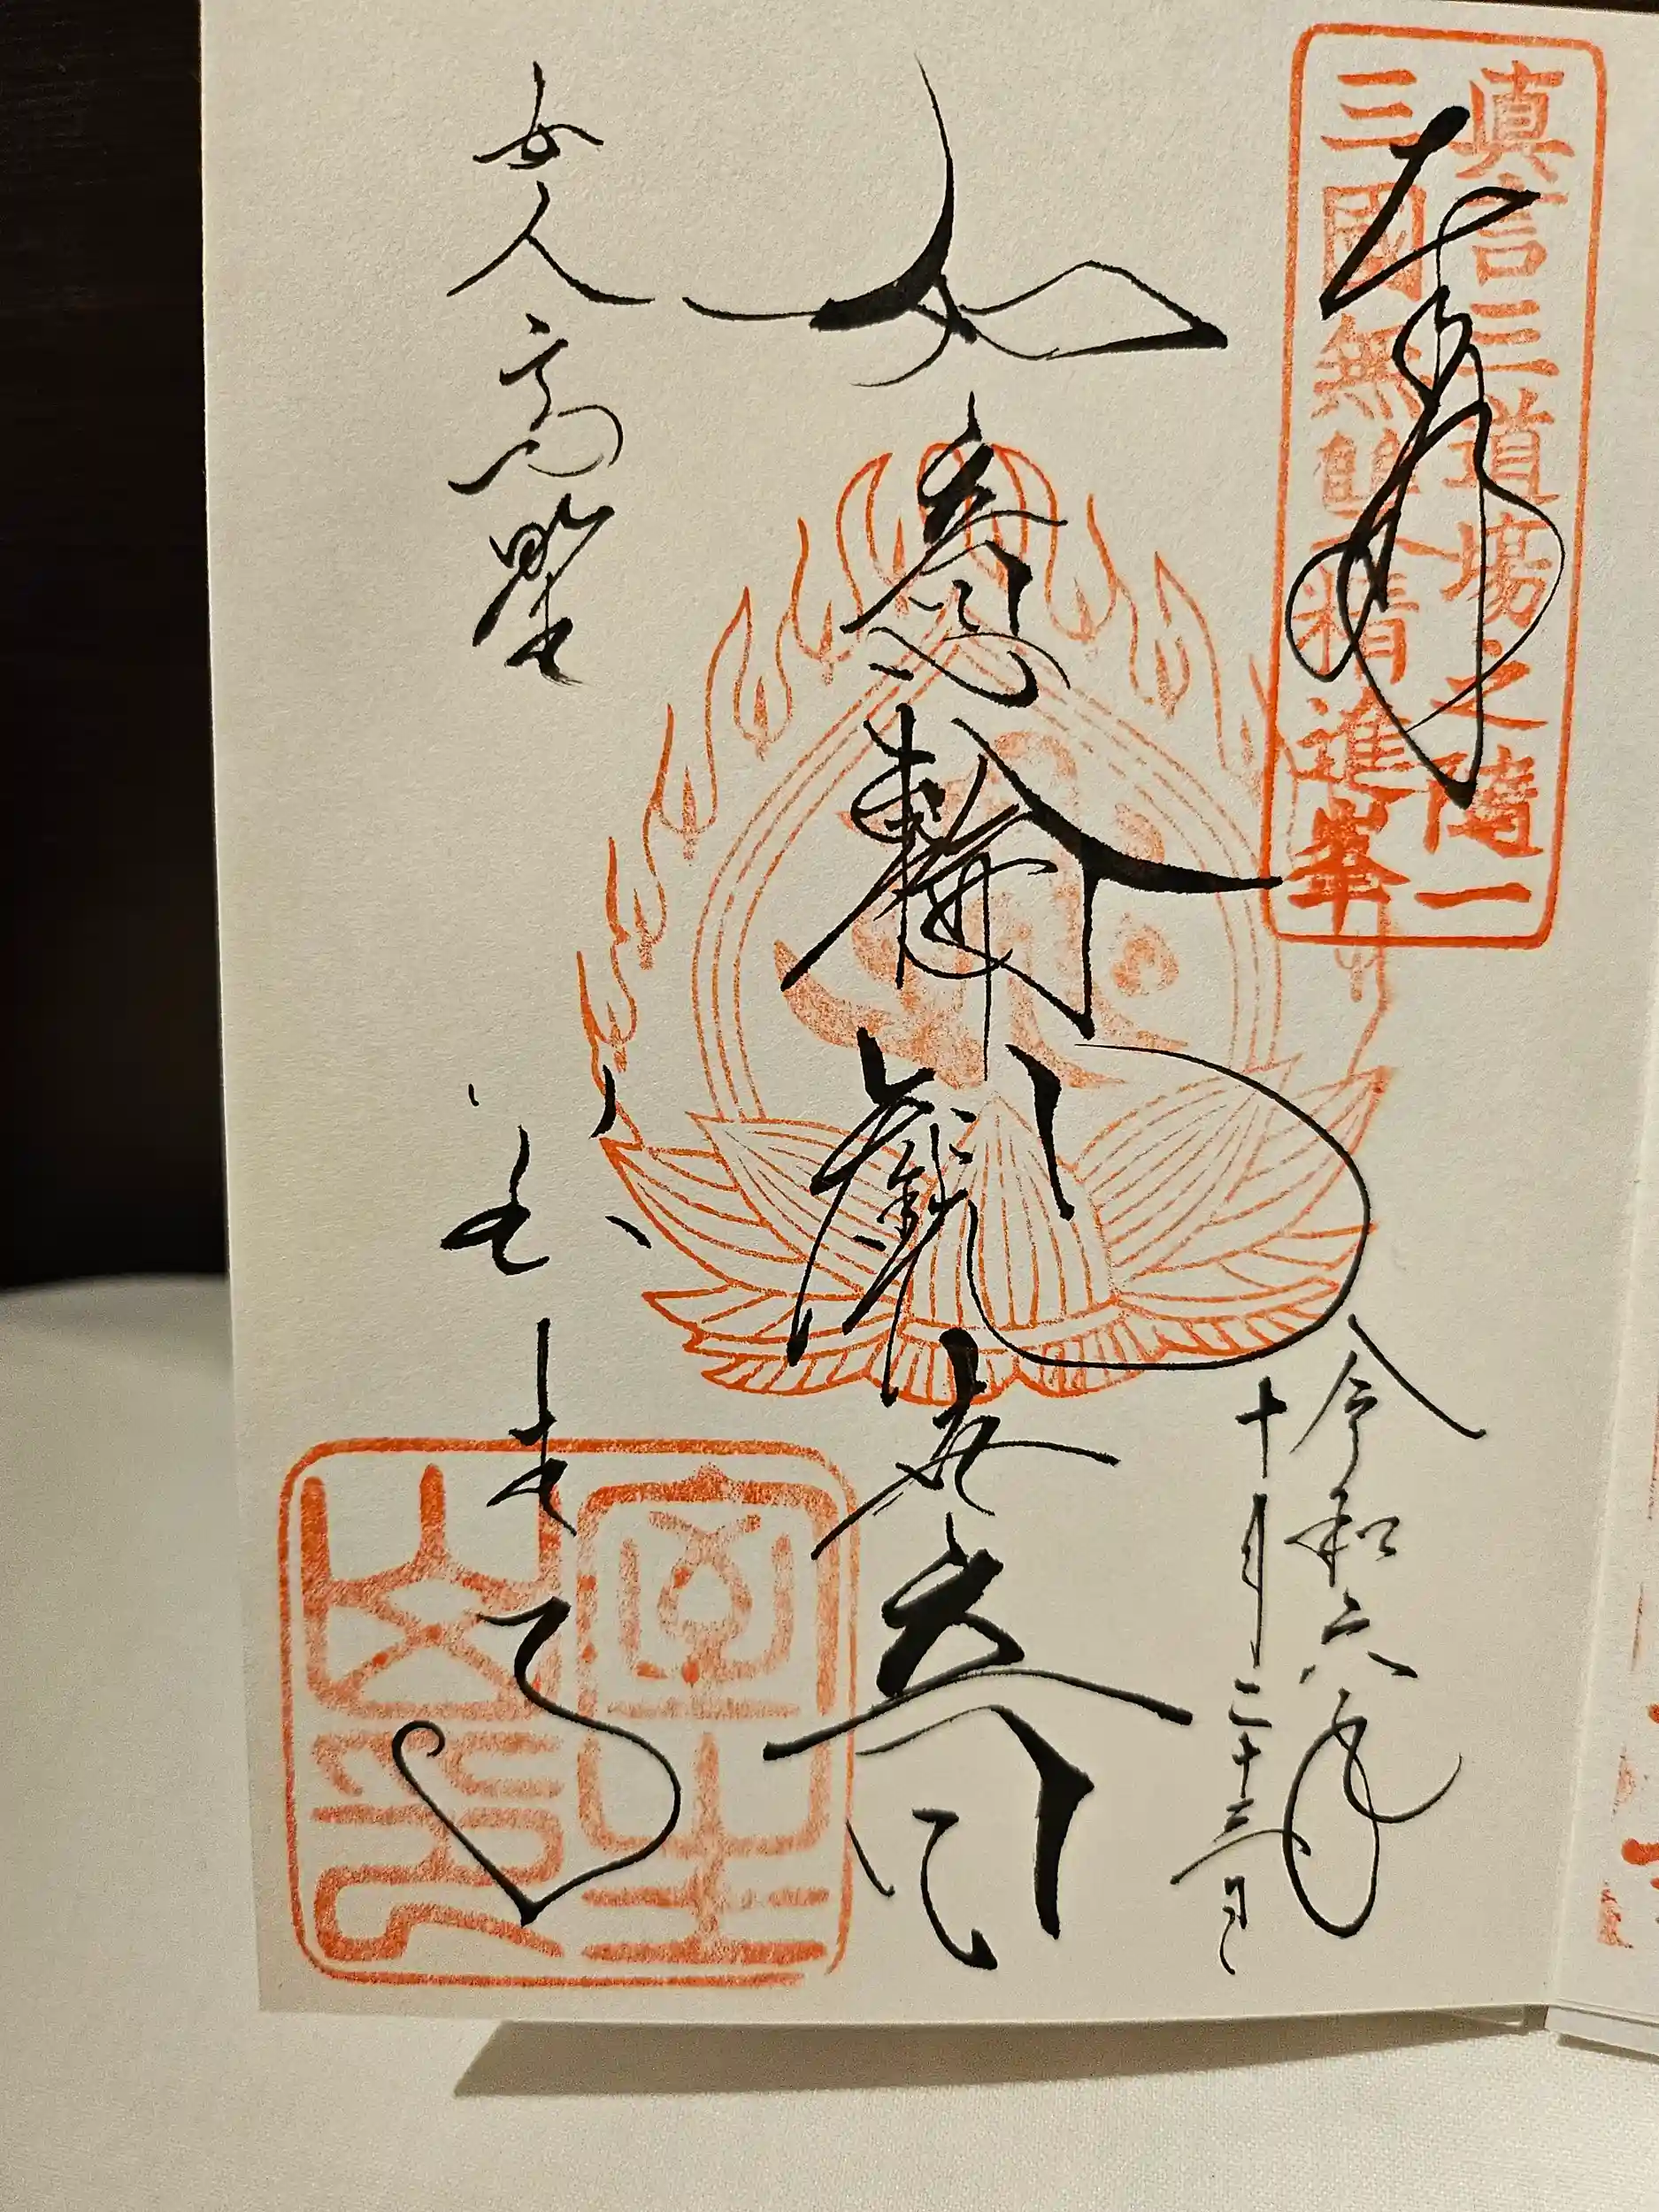 奉拝
眞言三道場之随一
三國無雙精進峯
令和六年
十月二十三日
如意輪観世音
女人高野 室生寺